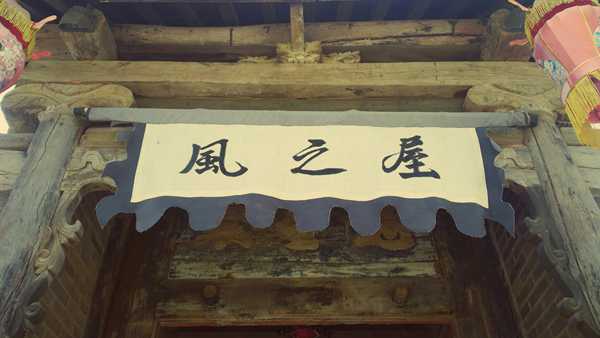 風之屋